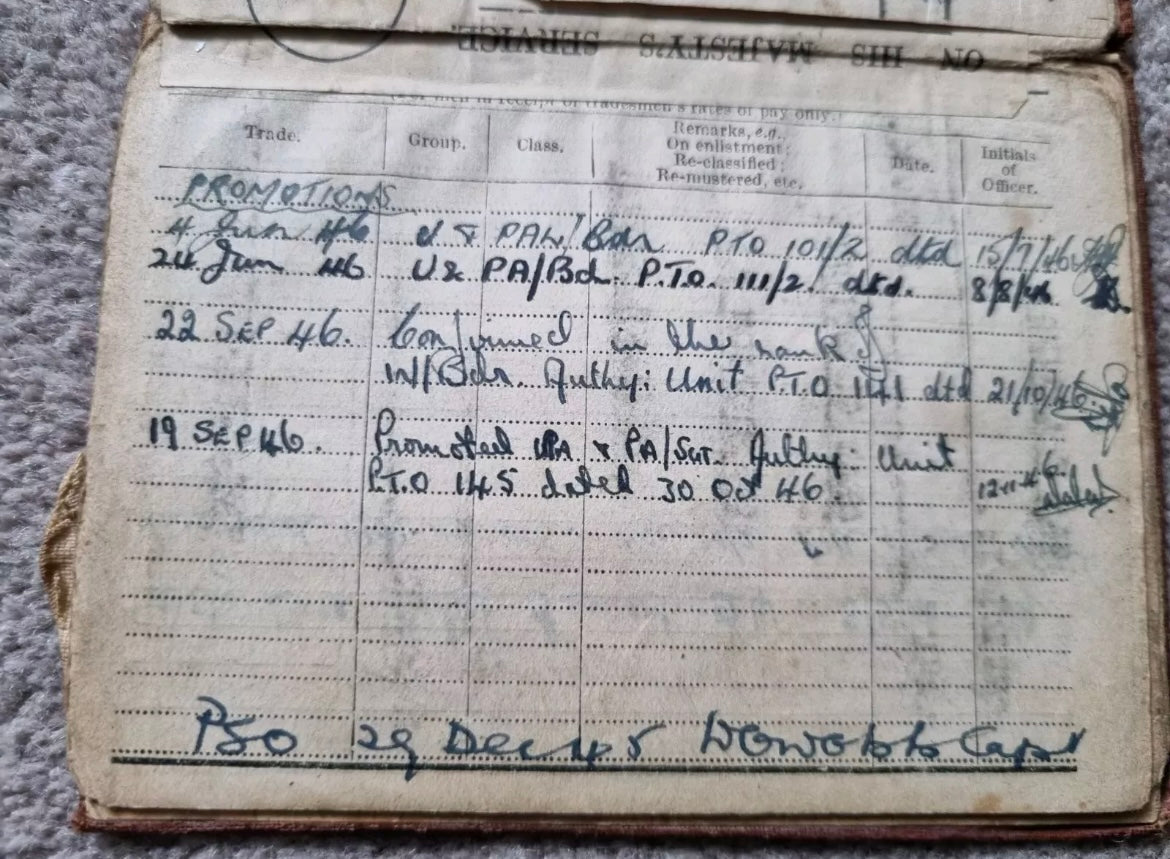 ON HIS MAJESTY'S SERVICE.
men in receipt of tradesmen's rates of pay only.
Trade. Group. Class. Remarks, e.g., On enlistment; Re-classified; Re-mustered, etc. Date. Initials of Officer.
PROMOTIONS
4 Jun 46 U & PAW/Bdr PTO 101/2 dtd 15/7/46
24 Jun 46 U & PA/Bd. P.T.O. 111/2. dtd. 8/8/46
22 SEP 46. Confirmed in the rank of
W/Bdr. Authy: Unit P.T.O 1141 dtd 21/10/46.
19 SEP 46. Promoted UPA & PA/Sgt. Authy: Unit
P.T.O 145 dated 30 Oct 46. 12-11-46
29 Dec 45 Capt